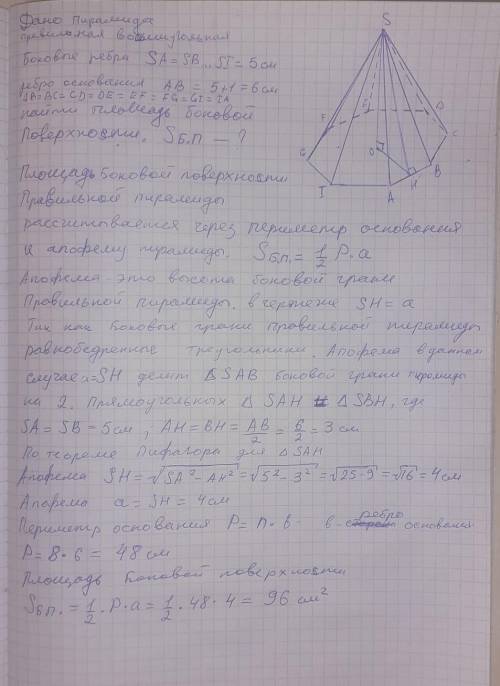 Дано пирамида
правильная восьмиугольная
Боковые ребра SA = SB .. SI = 5 см
ребро основания AB = 5+1 = 6 см
AB = BC = CD = DE = EF = FG = GI = IA
найти площадь боковой
Поверхности. Sб.п. — ?
Площадь Боковой поверхности
Правильной пирамиды
рассчитывается через периметр основания
и апофему пирамиды. Sб.п. = 1/2 P · a
Апофема - это высота боковой грани
Правильной пирамиды. в чертеже SH = a
Так как Боковые грани правильной пирамиды
равнобедренные треугольники. Апофема в данном
случае SH делит Δ SAB боковой грани пирамиды
на 2. прямоугольных Δ SAH и Δ SBH, где
SA = SB = 5 см, AH = BH = AB/2 = 6/2 = 3 см
По теореме Пифагора для Δ SAH
Апофема SH = √SA² - AH² = √5² - 3² = √25 - 9 = √16 = 4 см
Апофема a = SH = 4 см
Периметр основания P = n · в в - ребро основания
P = 8 · 6 = 48 см
Площадь Боковой поверхности
Sб.п. = 1/2 · P · a = 1/2 · 48 · 4 = 96 см²
S
F E D
C
G O B
H
I A